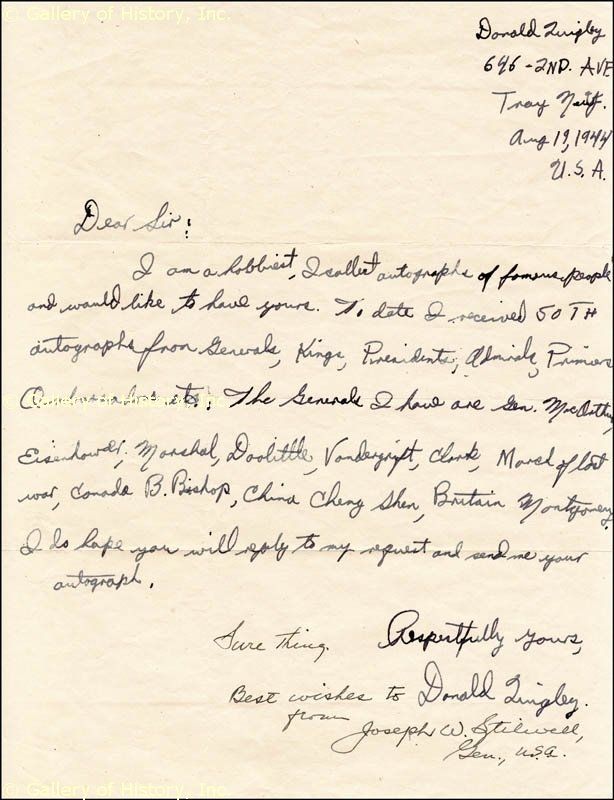 © Gallery of History, Inc.
Donald Quigley
646 - 2ND. AVE
Troy
Aug 19, 1944
U.S.A.
Dear Sir:
I am a hobbiest, I collect autographs of famous people
and would like to have yours. To date I received 50TH
autographs from Generals, Kings, Presidents, Admirals, Primiers
© Gallery of History, Inc.
The Generals I have are Gen. MacArthur,
Eisenhower, Marshal, Doolittle, Vandergrift, Clark, March of last
war, Canada B. Bishop, China Cheng Shen, Britain Montgomery
I do hope you will reply to my request and send me your
autograph.
Respectfully yours,
Sure thing.
Best wishes to Donald Quigley.
from
Joseph W. Stilwell,
Gen., U.S.A.
© Gallery of History, Inc.